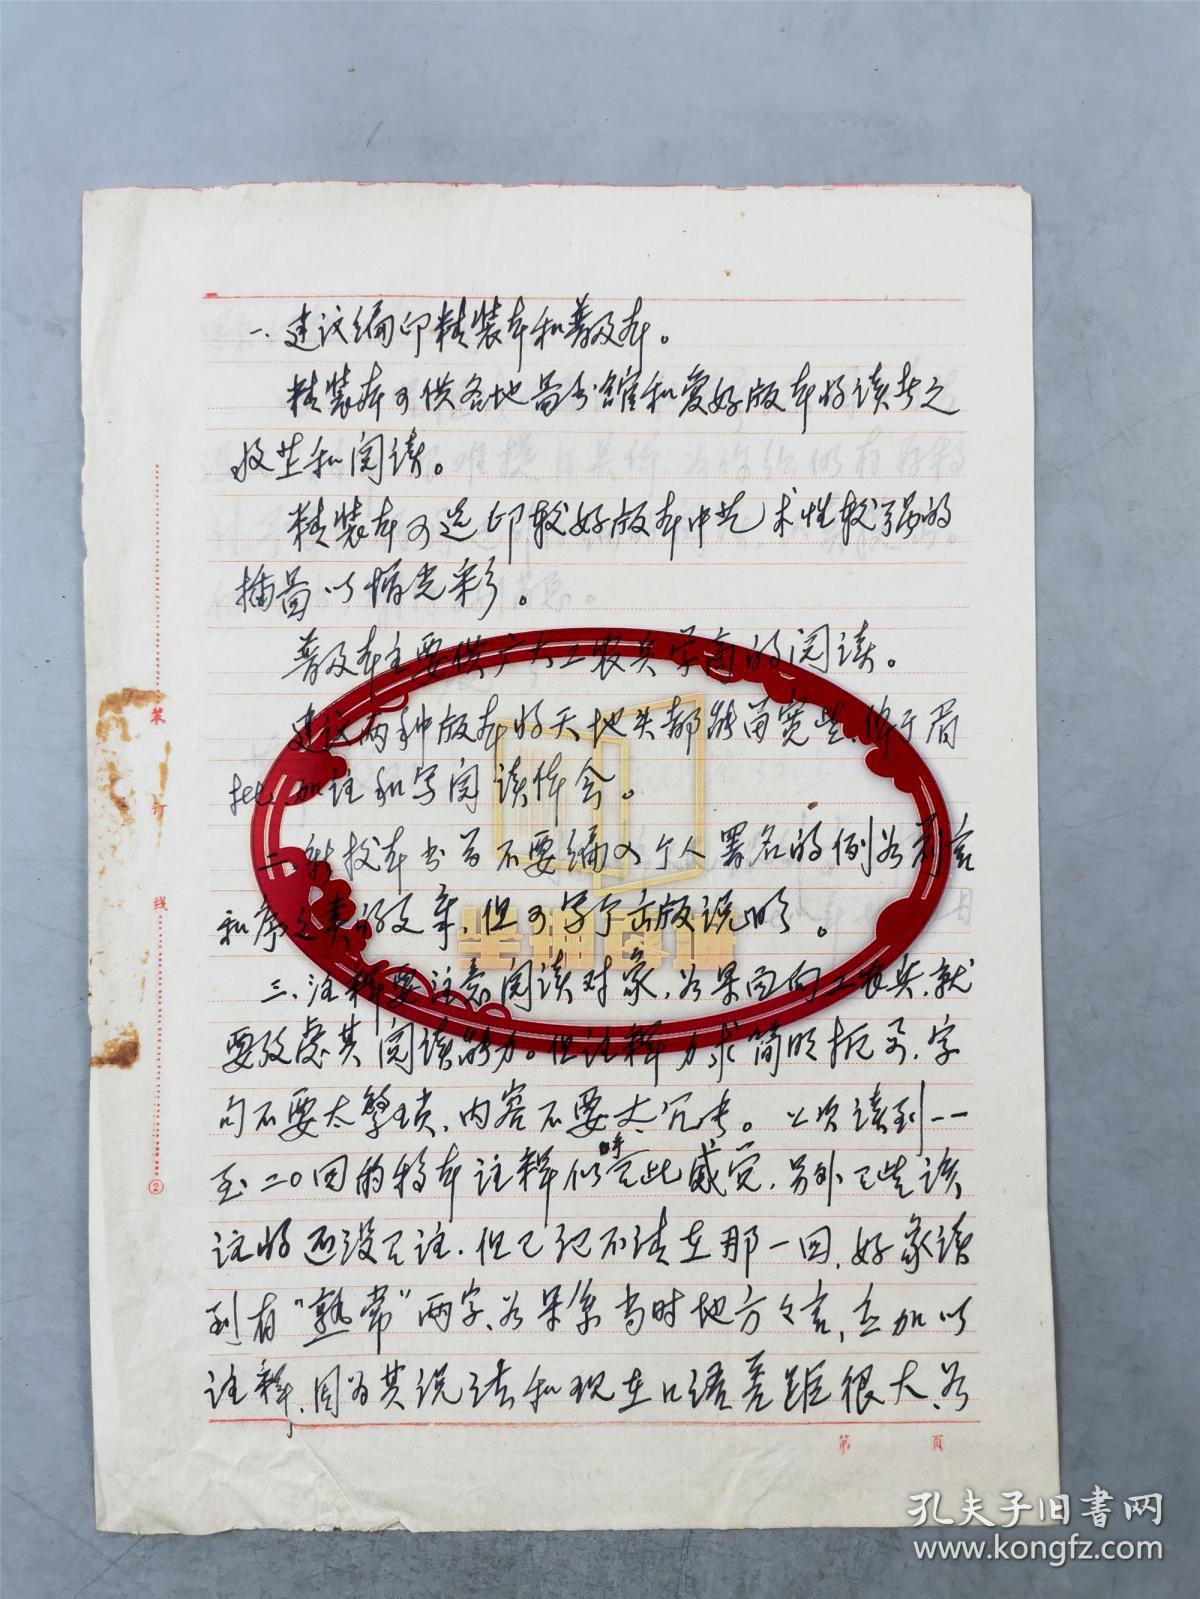 一、建议编印精装本和普及本。
精装本可供各地图书馆和爱好版本的读者之
收藏和阅读。
精装本可选印较好版本中艺术性较强的
插图以增光彩。
普及本主要供广大工农兵学商的阅读。
建议两种版本的天地头都能留宽些,便于眉
批、加注和写阅读体会。
二、新校本书首不要编入个人署名的例如前言
和序之类的文章,但可写个出版说明。
三、注释要注意阅读对象,如果面向工农兵,就
要考虑其阅读能力。但注释力求简明扼要,字
句不要太繁琐,内容不要太冗长。上次读到一
至二〇回的稿本注释似乎有此感觉,另外有些该
注的还没有注,但已记不清在那一回,好象读
到有“熟常”两字,如果系当时地方方言,应加以
注释,因为其说法和现在口语差距很大,如
装
订
线
②
第 页
孔夫子旧书网
www.kongfz.com